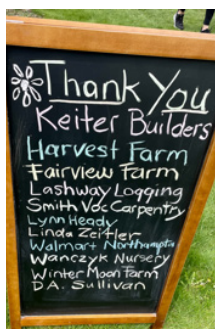 Thank You
Keiter Builders
Harvest Farm
Fairview Farm
Lashway Logging
Smith Voc Carpentry
Lynn Heady
Linda Zeitler
Walmart Northampton
Wanczyk Nursery
Winter Moon Farm
D.A. Sullivan